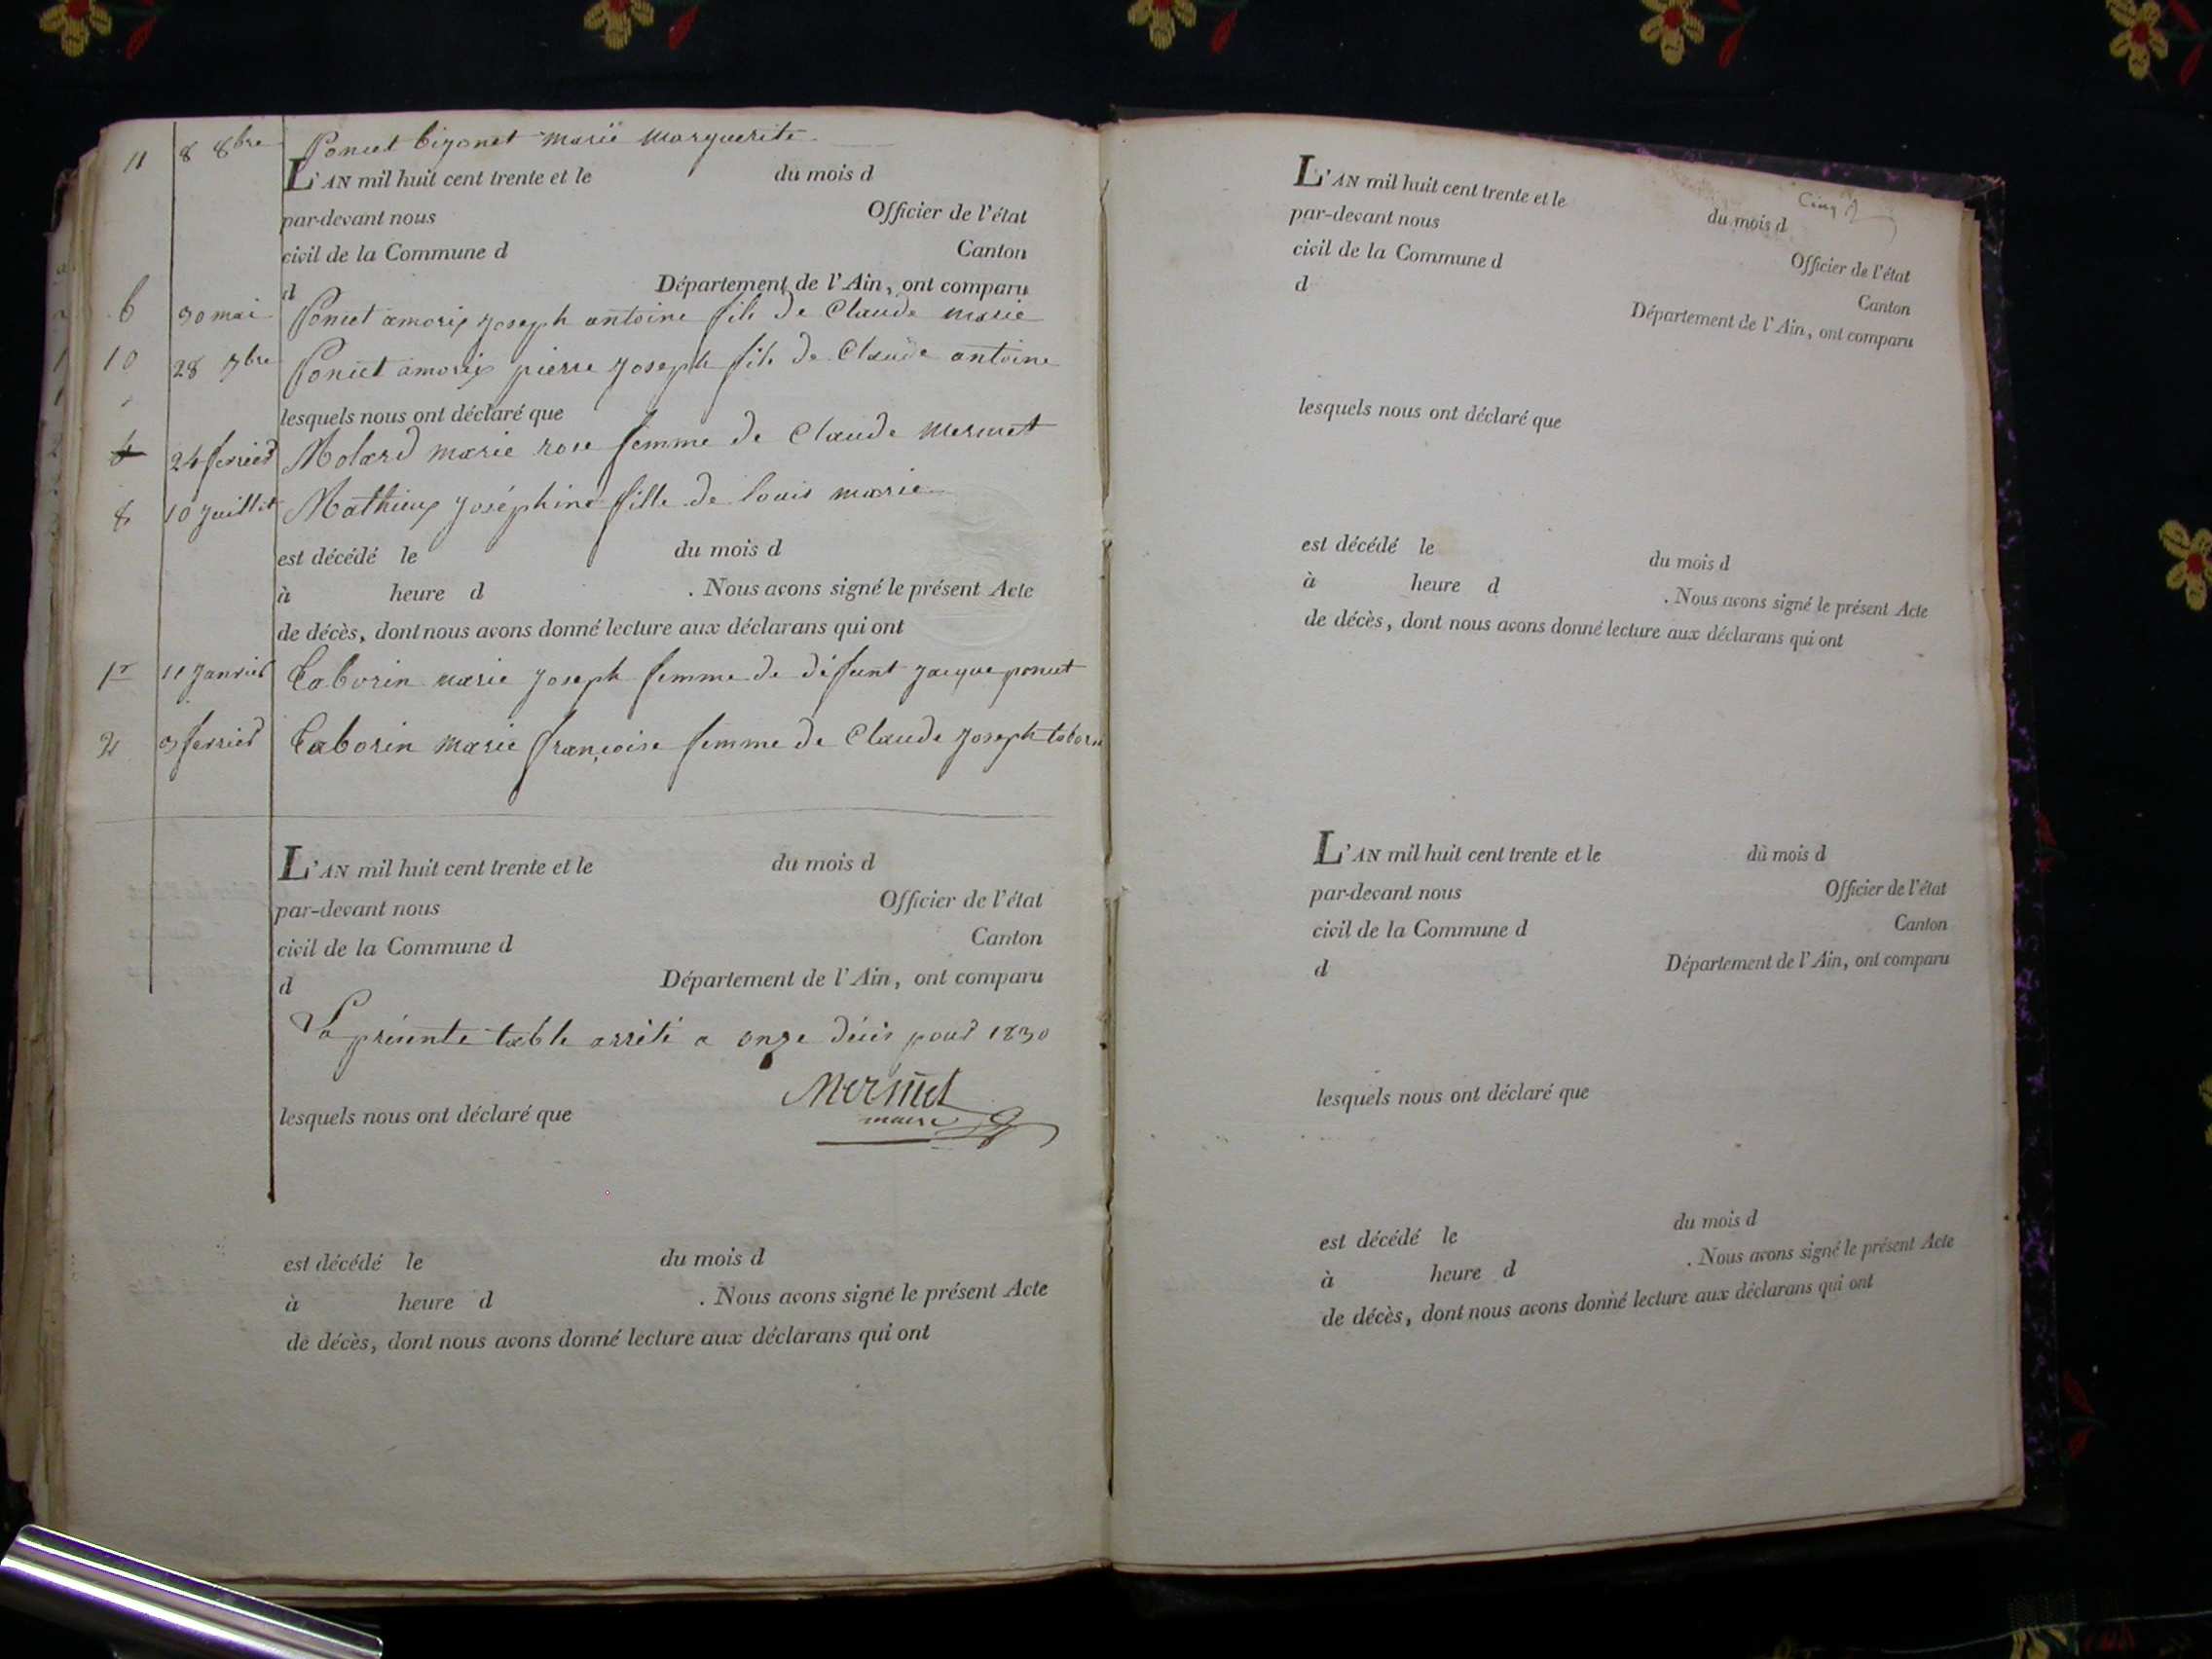 11 8 8bre Poncet bizonet marie Marguerite
L'AN mil huit cent trente et le du mois d
par-devant nous Officier de l'état
civil de la Commune d Canton
d Département de l'Ain, ont comparu
6 30 mai Poncet amorix joseph antoine fils de Claude marie
10 28 7bre Poncet amorix pierre joseph fils de Claude antoine
lesquels nous ont déclaré que
24 fevrier Molard marie rose femme de Claude Mermet
8 10 juillet Mathieux joséphine fille de louis marie
est décédé le du mois d
à heure d . Nous avons signé le présent Acte
de décès, dont nous avons donné lecture aux déclarans qui ont
1r 11 janvier taborin marie joseph femme de défunt jacque poncet
2 3 fevrier taborin marie françoise femme de Claude joseph tabori
L'AN mil huit cent trente et le du mois d
par-devant nous Officier de l'état
civil de la Commune d Canton
d Département de l'Ain, ont comparu
La présente table arrêté a onze décès pour 1830
Mermet
maire
lesquels nous ont déclaré que
est décédé le du mois d
à heure d . Nous avons signé le présent Acte
de décès, dont nous avons donné lecture aux déclarans qui ont
Cinq
L'AN mil huit cent trente et le du mois d
par-devant nous Officier de l'état
civil de la Commune d Canton
d Département de l'Ain, ont comparu
lesquels nous ont déclaré que
est décédé le du mois d
à heure d . Nous avons signé le présent Acte
de décès, dont nous avons donné lecture aux déclarans qui ont
L'AN mil huit cent trente et le du mois d
par-devant nous Officier de l'état
civil de la Commune d Canton
d Département de l'Ain, ont comparu
lesquels nous ont déclaré que
est décédé le du mois d
à heure d . Nous avons signé le présent Acte
de décès, dont nous avons donné lecture aux déclarans qui ont